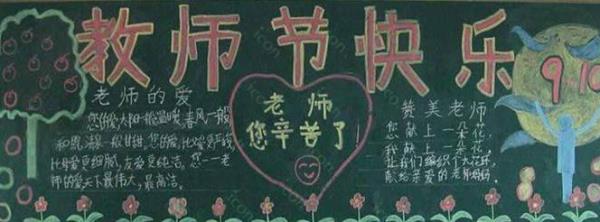 教师节快乐
910
老师的爱
您的爱,太阳一般温暖,春风一般
和煦,清泉一般甘甜,您的爱,比父爱更严峻,
比母爱更细腻,友爱更纯洁。您一老
师的爱,天下最伟大,最高洁。
老师
您辛苦了
赞美老师
您献上一朵花,
我献上一朵花,
让我们编织个大花环,
献给亲爱的老师妈妈.